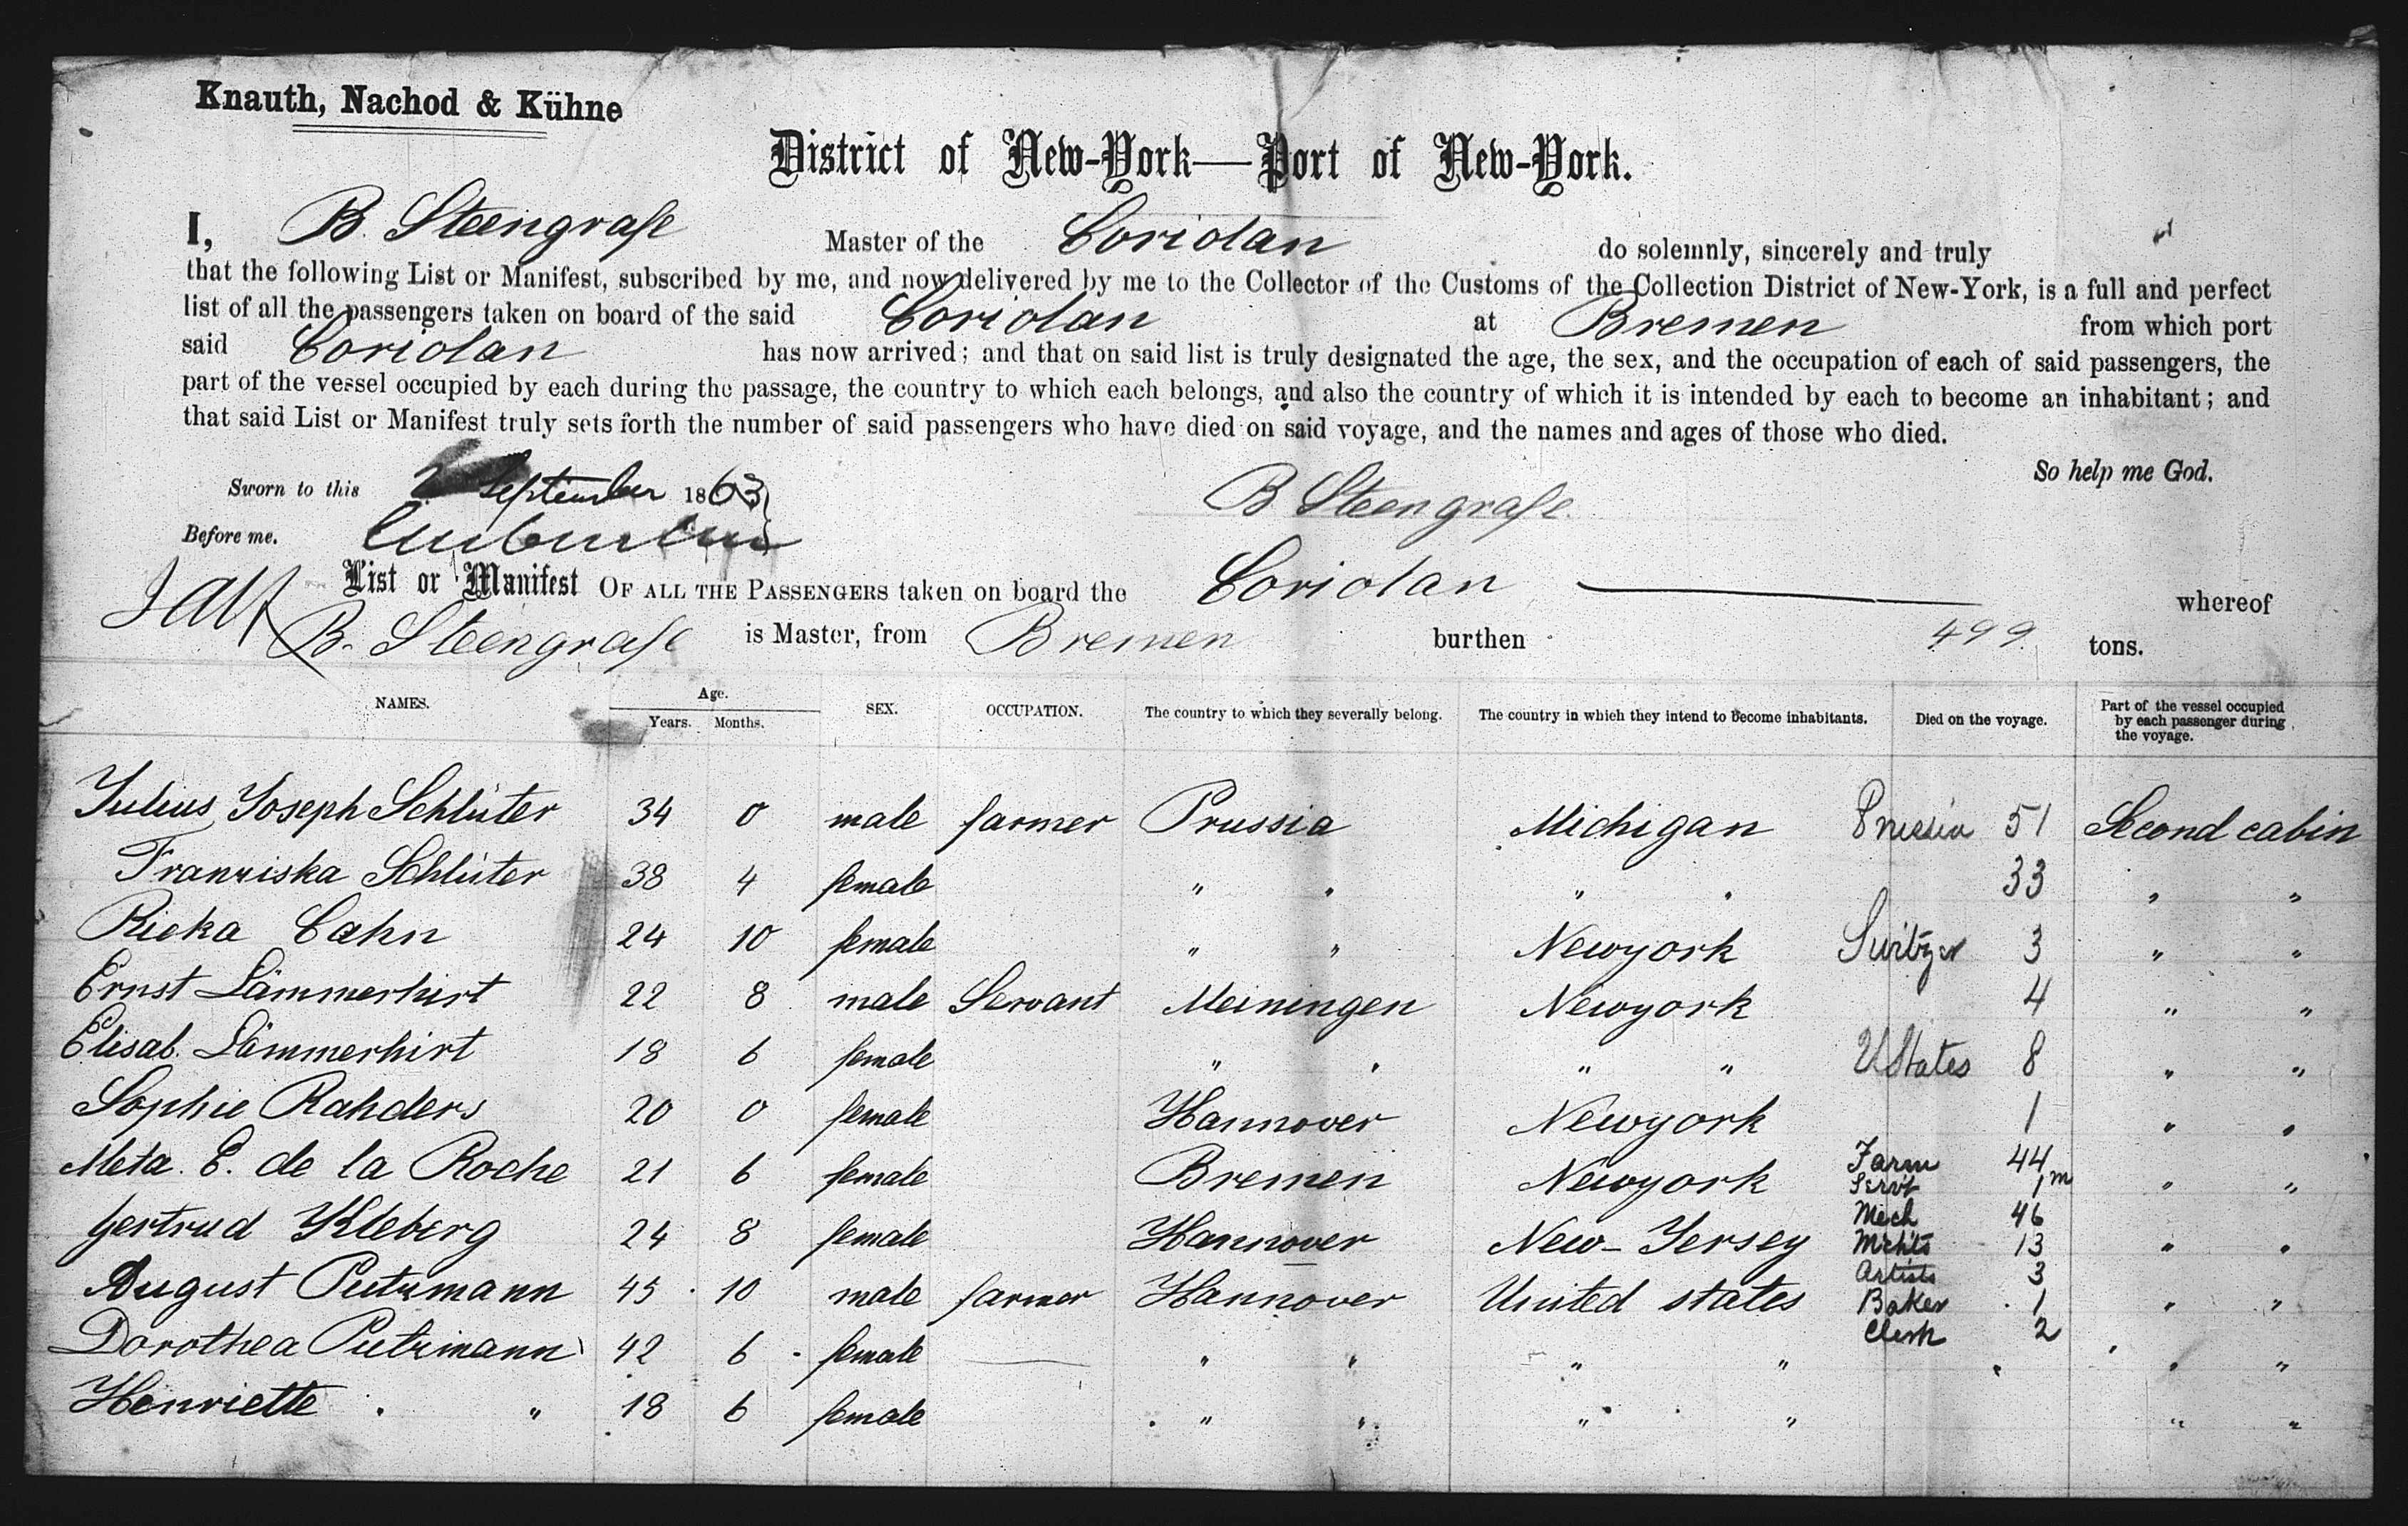 Knauth, Nachod & Kühne
District of New-York—Port of New-York.
I, B. Steengrafe Master of the Coriolan do solemnly, sincerely and truly
that the following List or Manifest, subscribed by me, and now delivered by me to the Collector of the Customs of the Collection District of New-York, is a full and perfect
list of all the passengers taken on board of the said Coriolan at Bremen from which port
said Coriolan has now arrived; and that on said list is truly designated the age, the sex, and the occupation of each of said passengers, the
part of the vessel occupied by each during the passage, the country to which each belongs, and also the country of which it is intended by each to become an inhabitant; and
that said List or Manifest truly sets forth the number of said passengers who have died on said voyage, and the names and ages of those who died.
So help me God.
Sworn to this September 1863
B Steengrafe.
Before me.
List or Manifest OF ALL THE PASSENGERS taken on board the Coriolan whereof
B. Steengrafe is Master, from Bremen burthen 499 tons.
NAMES. Age. Years. Months. SEX. OCCUPATION. The country to which they severally belong. The country in which they intend to become inhabitants. Died on the voyage. Part of the vessel occupied by each passenger during the voyage.
Julius Joseph Schlüter 34 0 male farmer Prussia Michigan Prussia 51 Second cabin
Franziska Schlüter 38 4 female " " " " 33 " "
Rieka Cahn 24 10 female " " Newyork Switzer 3 " "
Ernst Lämmerhirt 22 8 male Servant Meiningen Newyork 4 " "
Elisab. Lämmerhirt 18 6 female " " " " U States 8 " "
Sophie Rahders 20 0 female Hannover Newyork 1 " "
Meta. E. de la Roche 21 6 female Bremen Newyork Farm 44 " "
Servt 1 m
Gertrud Kleberg 24 8 female Hannover New-Jersey Mech 46 " "
Mchts 13
Artists 3
August Putzmann 45 10 male farmer Hannover United states Baker 1 " "
Clerk 2
Dorothea Putzmann 42 6 female — " " " " " "
Henriette " 18 6 female " " " " " "